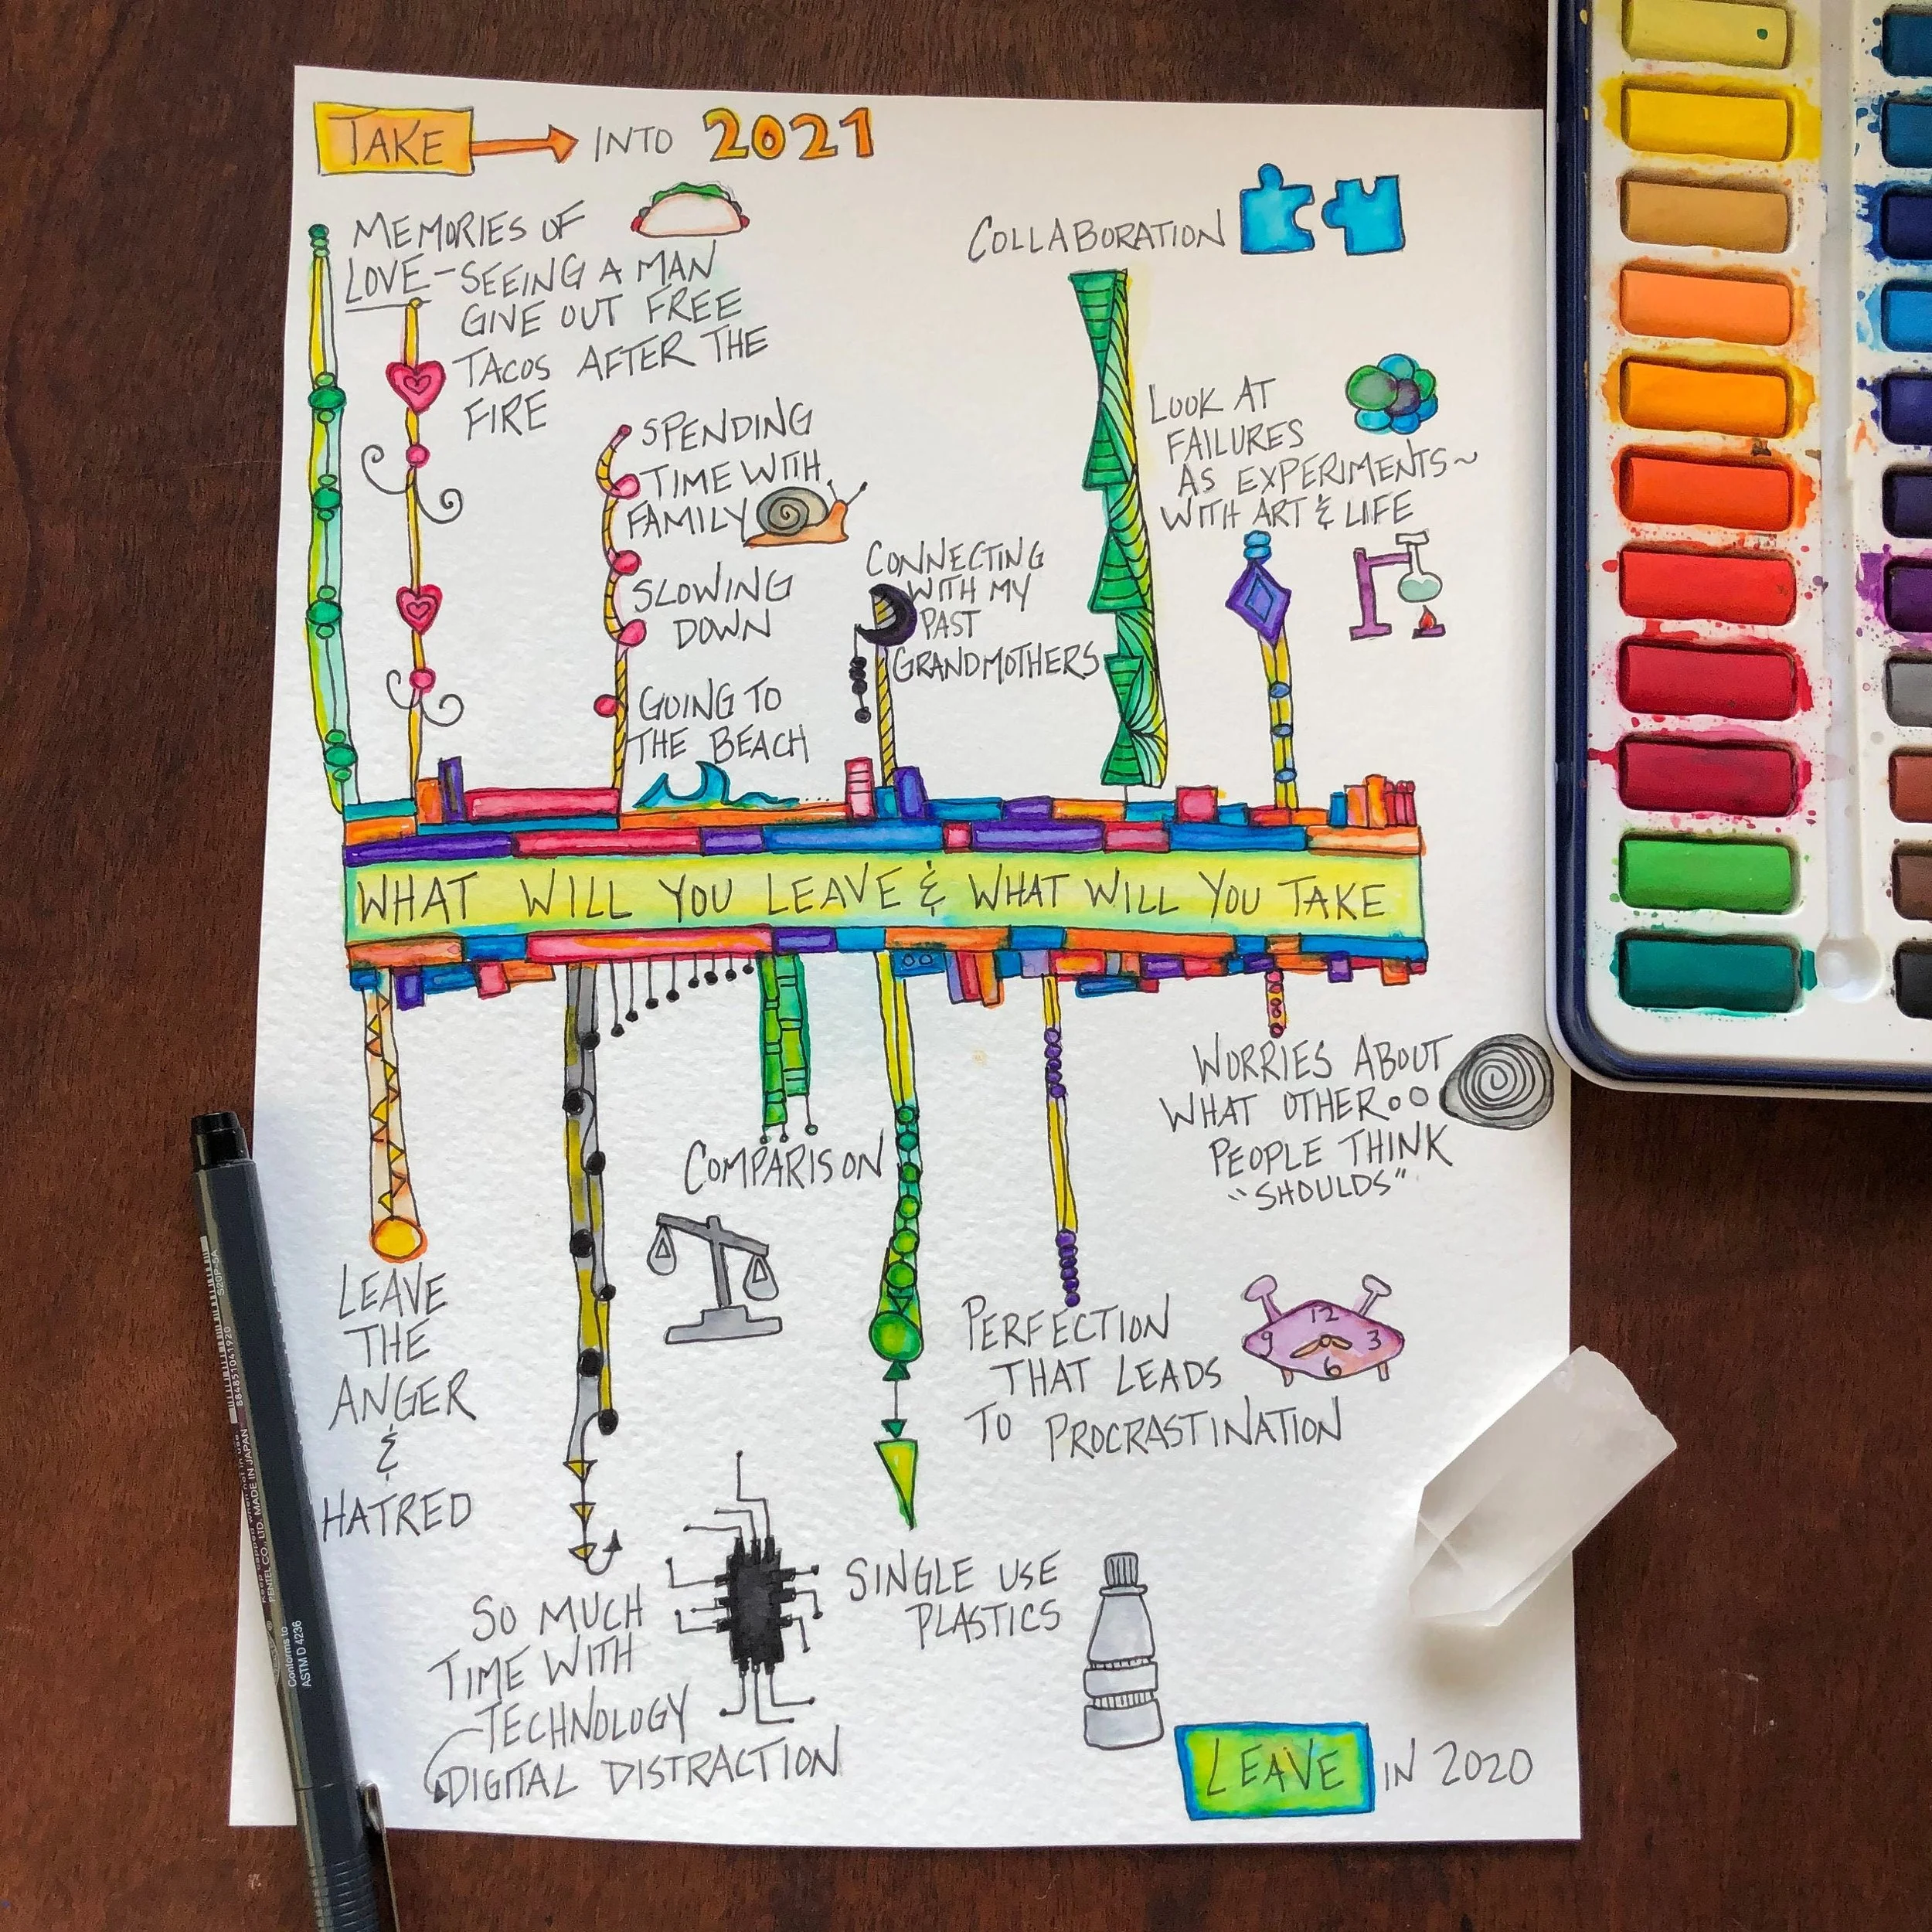 TAKE → INTO 2021
MEMORIES OF
LOVE - SEEING A MAN
GIVE OUT FREE
TACOS AFTER THE
FIRE
SPENDING
TIME WITH
FAMILY
SLOWING
DOWN
GOING TO
THE BEACH
CONNECTING
WITH MY
PAST
GRANDMOTHERS
COLLABORATION
LOOK AT
FAILURES
AS EXPERIMENTS~
WITH ART & LIFE
WHAT WILL YOU LEAVE & WHAT WILL YOU TAKE
LEAVE
THE
ANGER
&
HATRED
SO MUCH
TIME WITH
TECHNOLOGY
DIGITAL DISTRACTION
COMPARISON
SINGLE USE
PLASTICS
PERFECTION
THAT LEADS
TO PROCRASTINATION
12
9 3
6
WORRIES ABOUT
WHAT OTHER
PEOPLE THINK
"SHOULDS"
LEAVE IN 2020
S20P-5A
884851041920
PENTEL CO., LTD. MADE IN JAPAN
Conforms to
ASTM D 4236